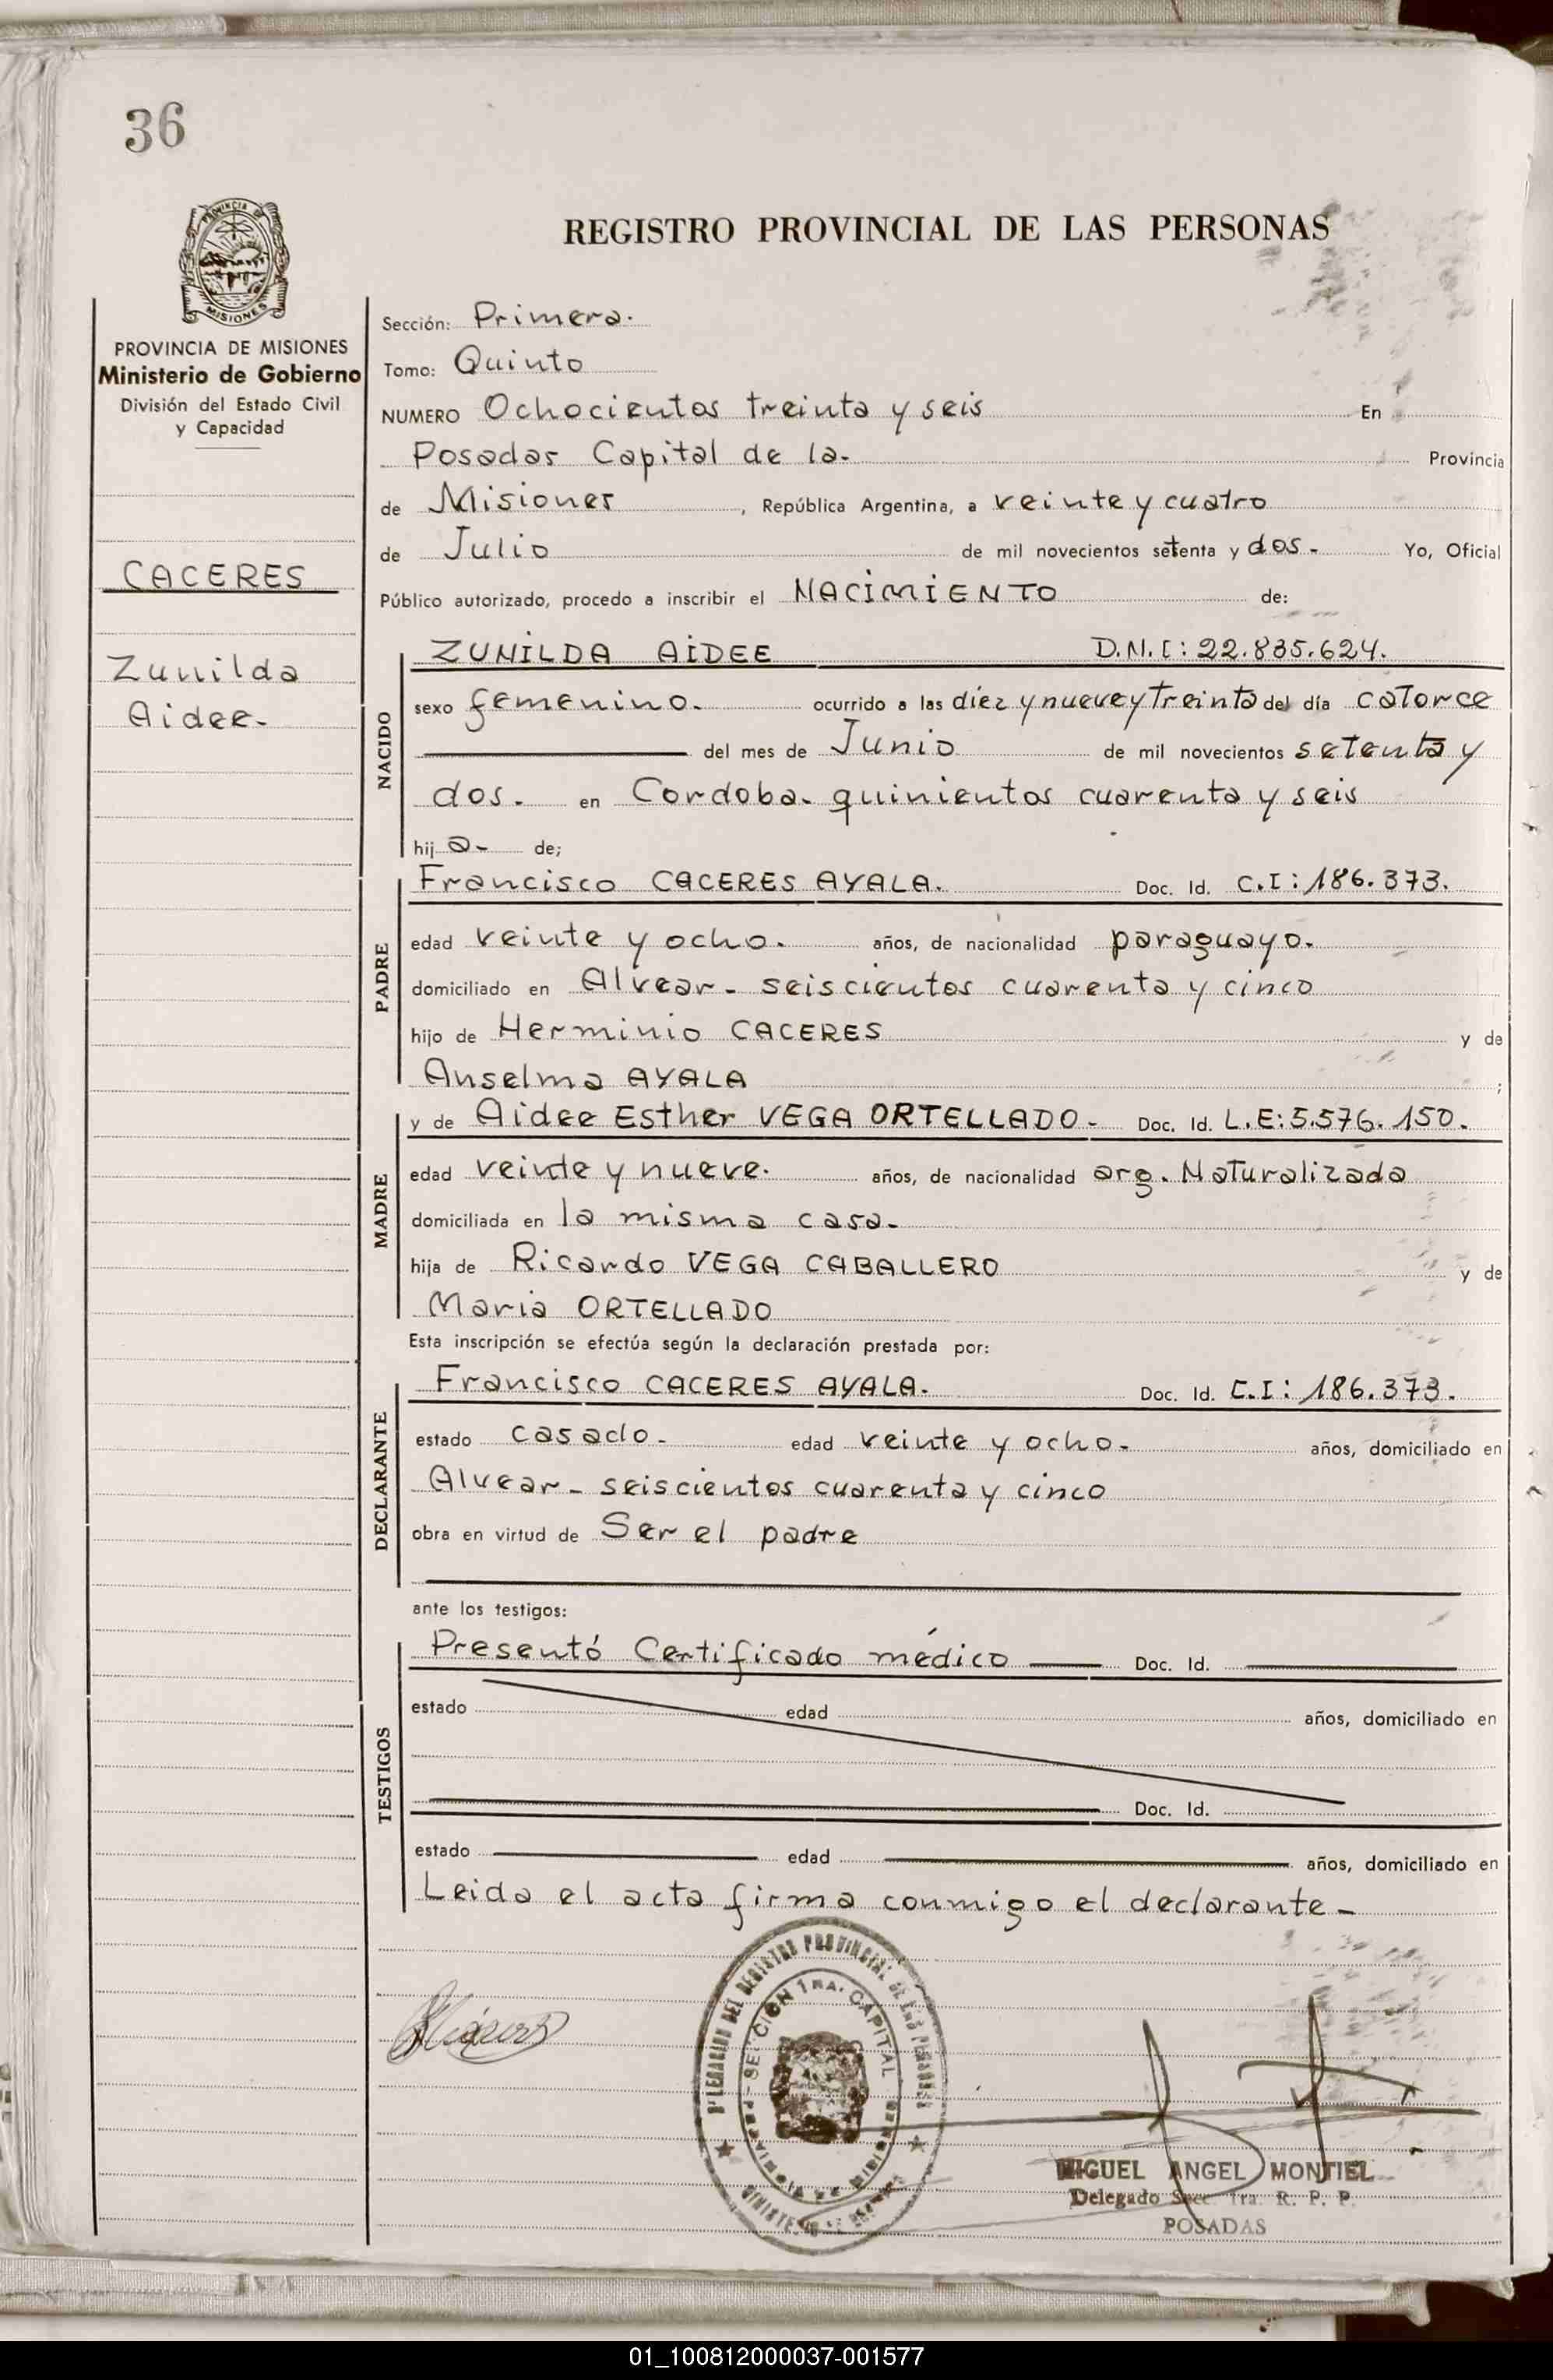 36
PROVINCIA DE
MISIONES
REGISTRO PROVINCIAL DE LAS PERSONAS
PROVINCIA DE MISIONES
Ministerio de Gobierno
División del Estado Civil
y Capacidad
CACERES
Zunilda
Aidee-
Sección: Primera.
Tomo: Quinto
NUMERO Ochocientos treinta y seis En
Posadas Capital de la- Provincia
de Misiones, República Argentina, a veinte y cuatro
de Julio de mil novecientos setenta y dos.- Yo, Oficial
Público autorizado, procedo a inscribir el NACIMIENTO de:
NACIDO
ZUNILDA AIDEE D.N.I: 22.835.624.
sexo femenino. ocurrido a las diez y nueve y treinta del día catorce
del mes de Junio de mil novecientos setenta y
dos. en Cordoba- quinientos cuarenta y seis
hij a- de;
PADRE
Francisco CACERES AYALA. Doc. Id. C.I: 186.373.
edad veinte y ocho. años, de nacionalidad paraguayo.
domiciliado en Alvear- seiscientos cuarenta y cinco
hijo de Herminio CACERES y de
Anselma AYALA ;
MADRE
y de Aidee Esther VEGA ORTELLADO- Doc. Id. L.E: 5.576.150.
edad veinte y nueve. años, de nacionalidad arg. Naturalizada
domiciliada en la misma casa-
hija de Ricardo VEGA CABALLERO y de
Maria ORTELLADO
Esta inscripción se efectúa según la declaración prestada por:
DECLARANTE
Francisco CACERES AYALA. Doc. Id. C.I: 186.373.
estado casado- edad veinte y ocho- años, domiciliado en
Alvear- seiscientos cuarenta y cinco
obra en virtud de Ser el padre
ante los testigos:
TESTIGOS
Presentó Certificado médico Doc. Id.
estado edad años, domiciliado en
Doc. Id.
estado edad años, domiciliado en
Leida el acta firma conmigo el declarante-
DELEGACION DEL REGISTRO PROVINCIAL DE LAS PERSONAS
SECCION 1RA. CAPITAL
MIGUEL ANGEL MONTIEL
Delegado Secc. 1ra. R. P. P.
POSADAS
01_100812000037-001577